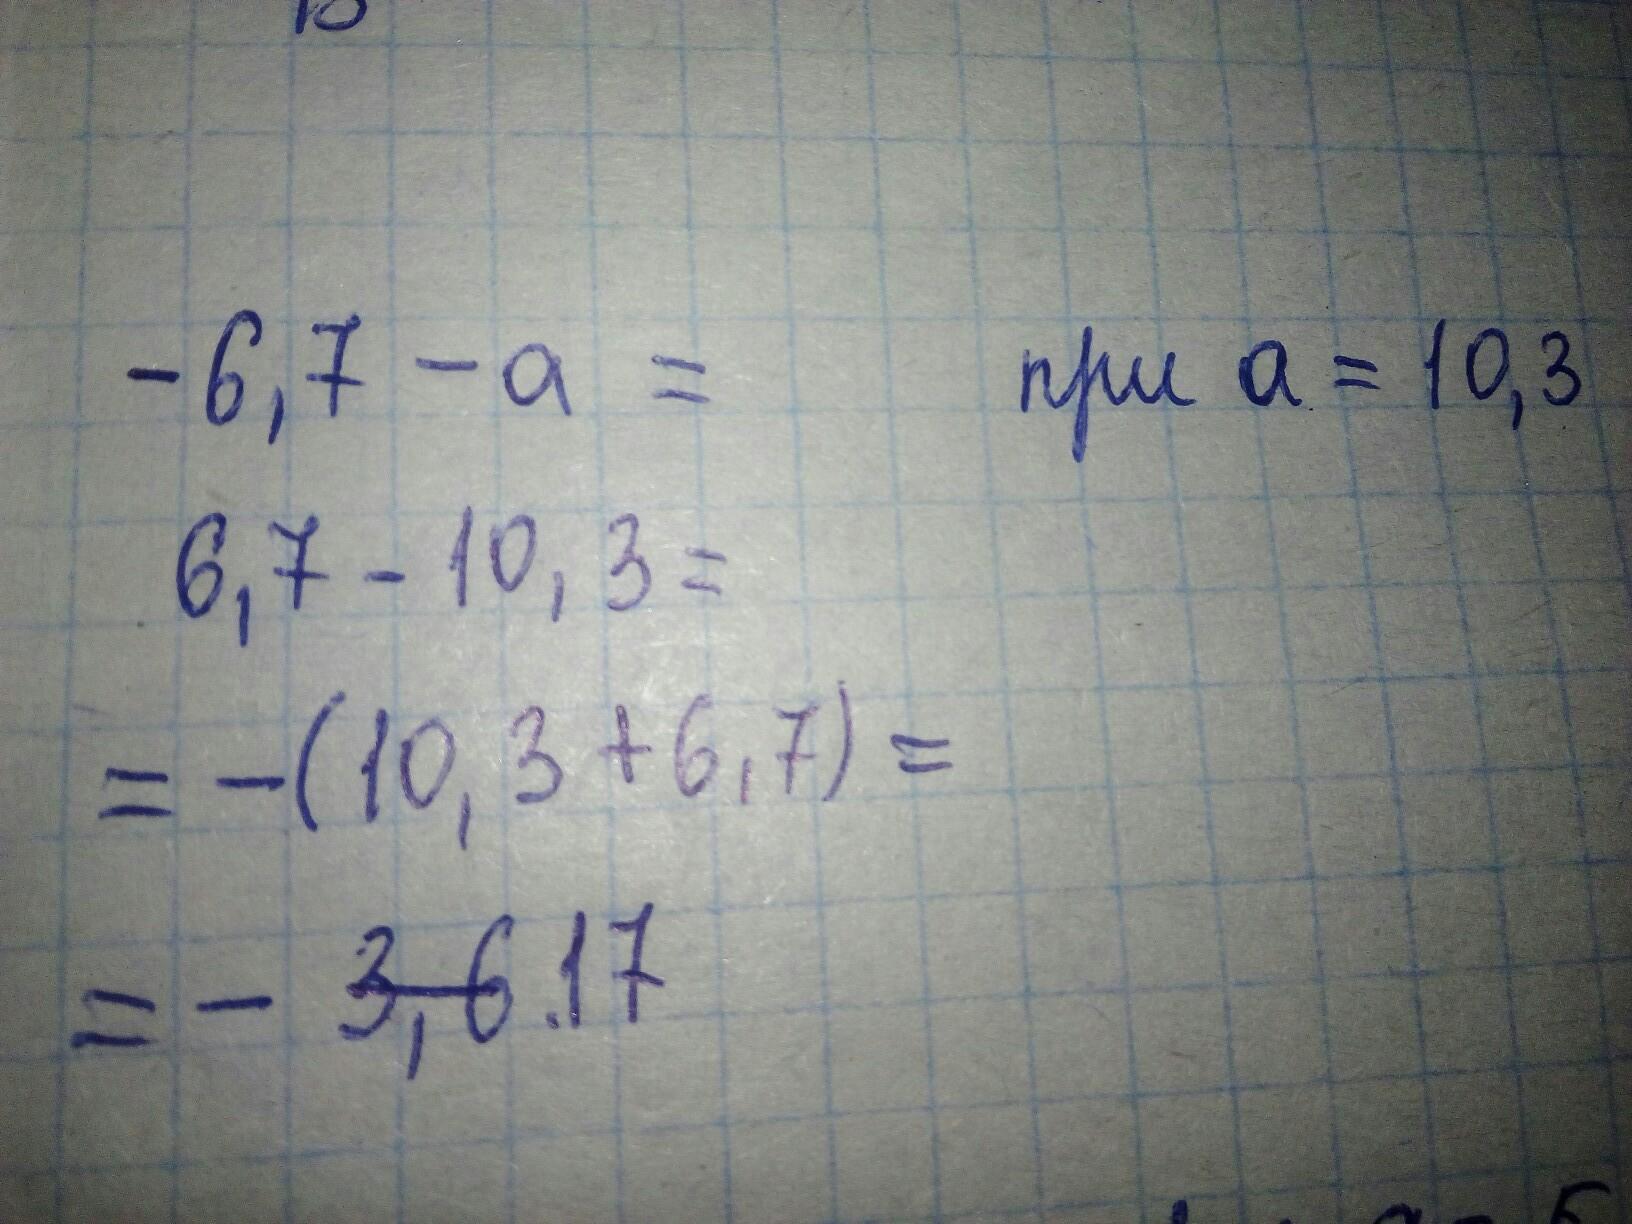 -6,7 - a = при a = 10,3
6,7 - 10,3 =
= -(10,3 + 6,7) =
= - 3,6.17